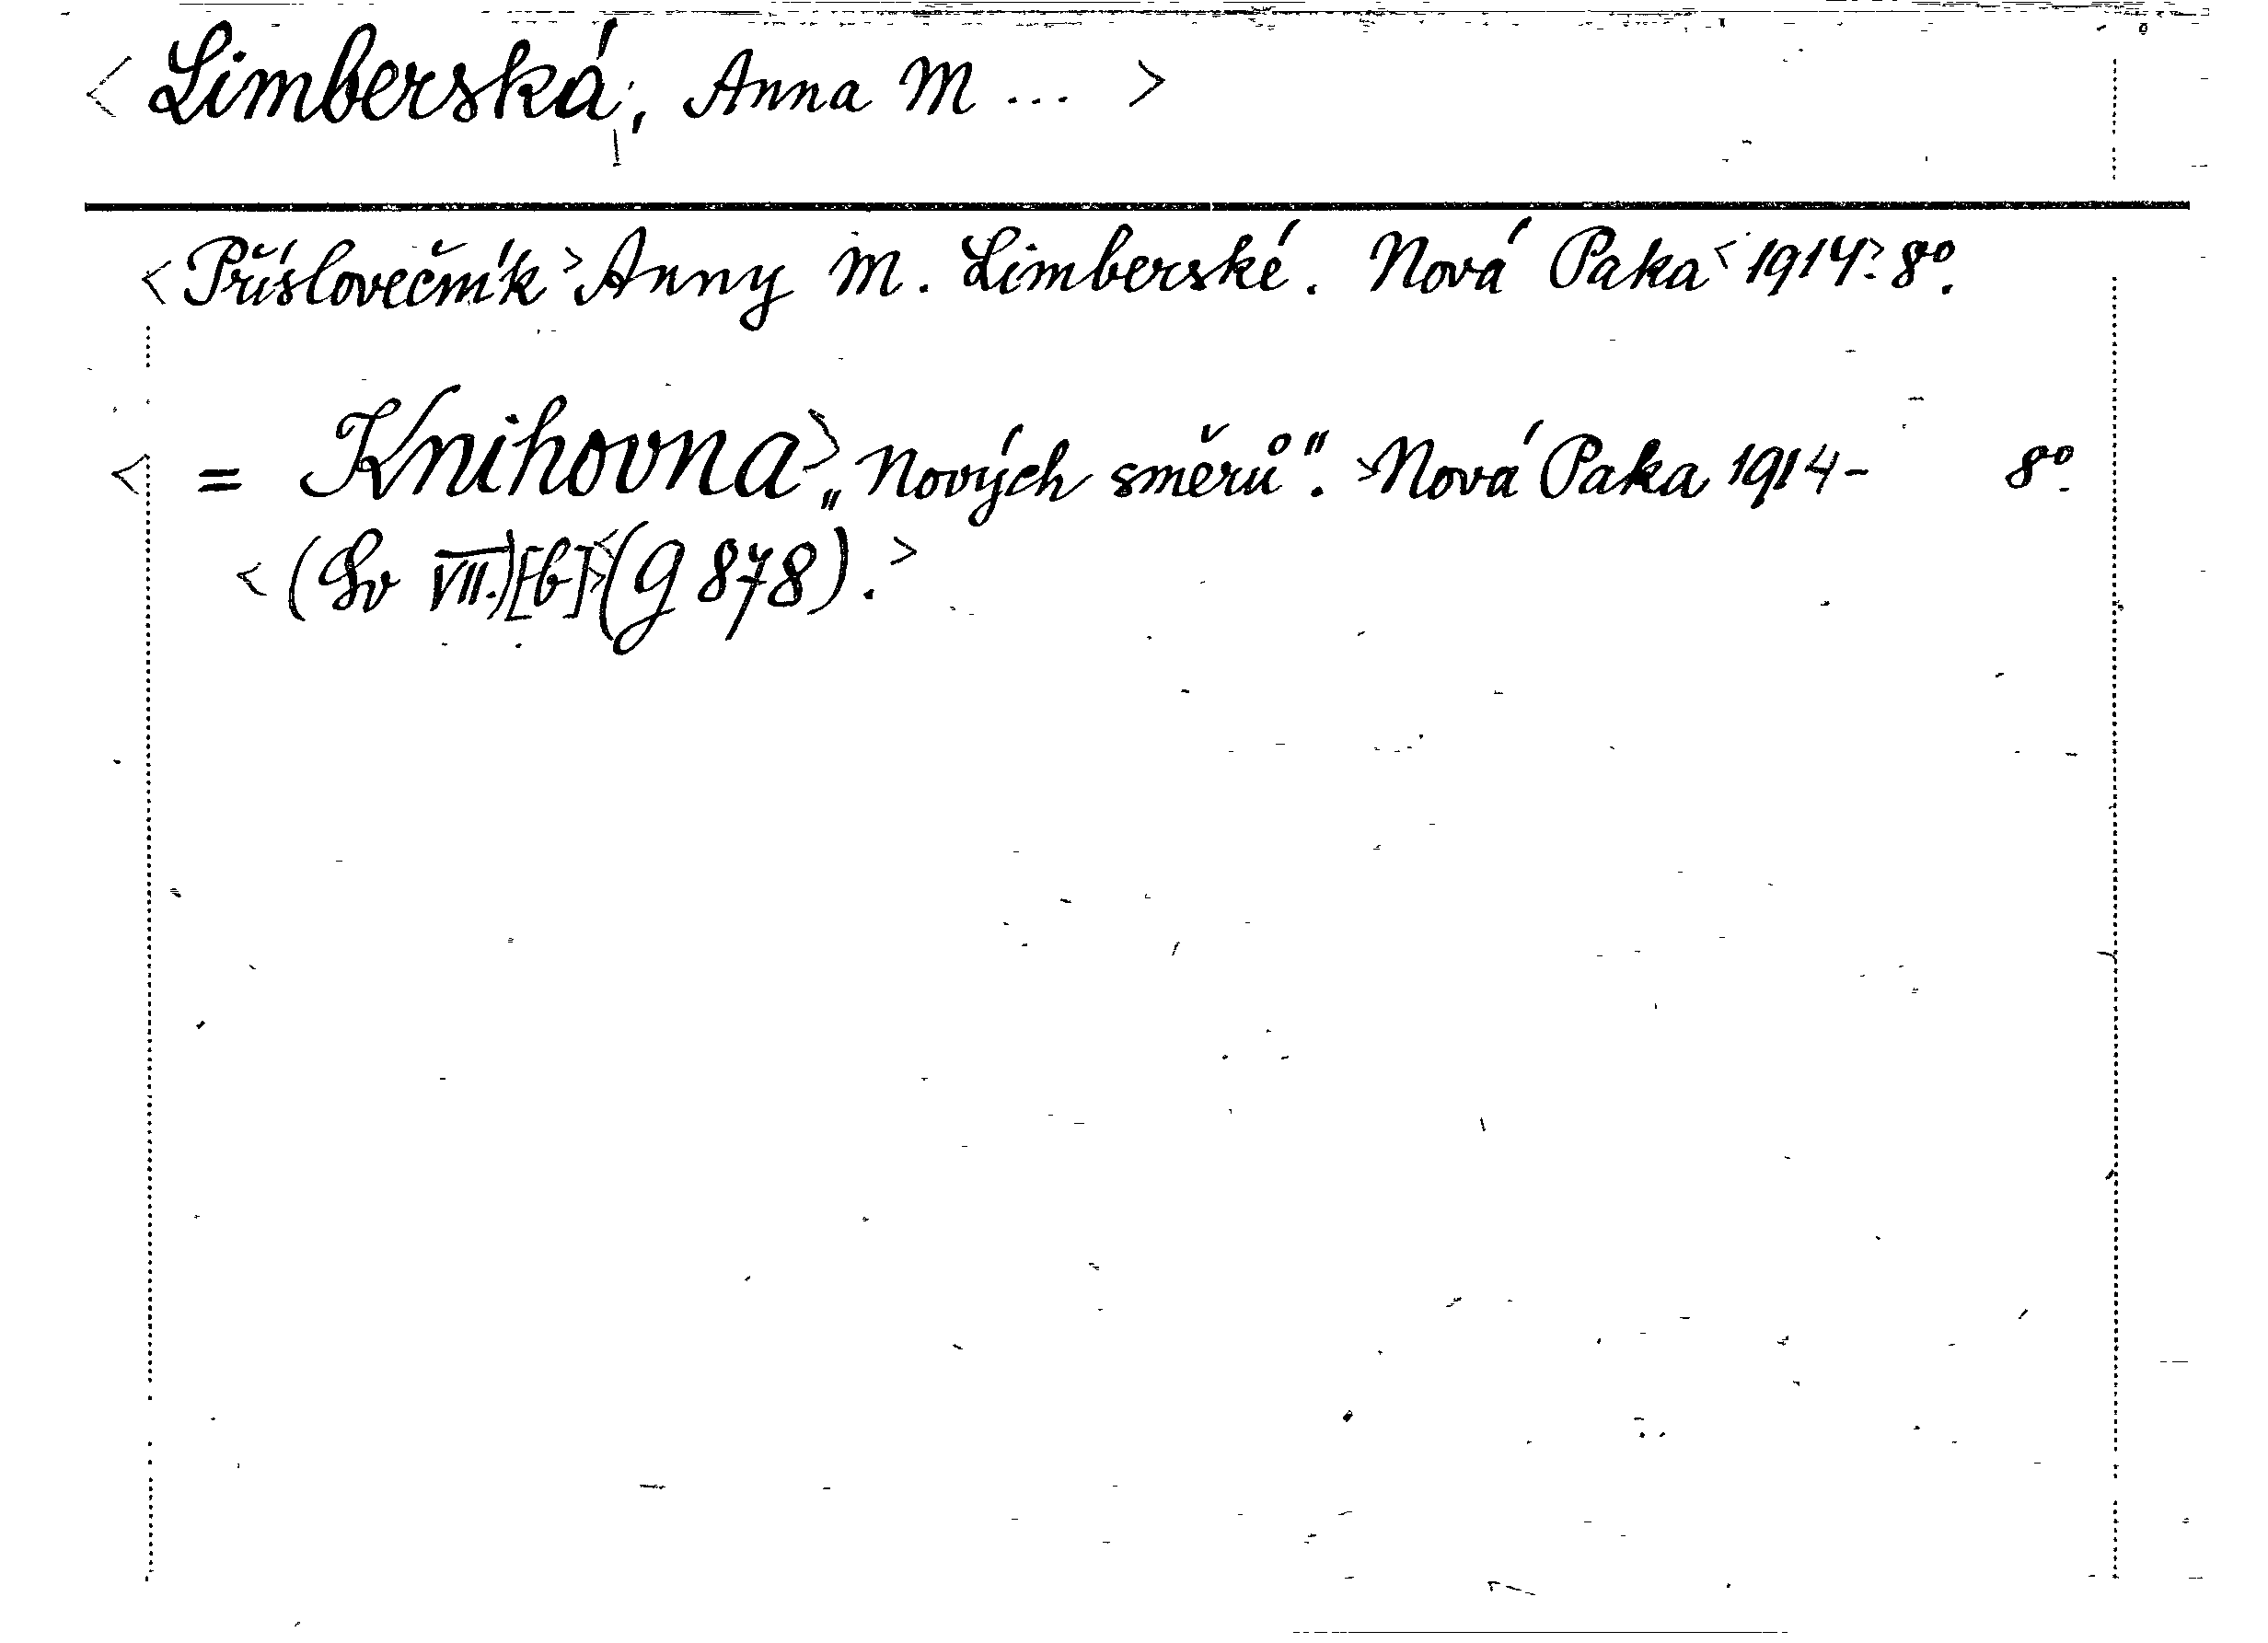 < Limberská, Anna M ... >
< Příslovečník > Anny M. Limberské. Nová Paka < 1914. > 8º.
< = Knihovna > „Nových směrů“. > Nová Paka 1914- 8º.
< (Sv VII.) [b] > < (G 878). >